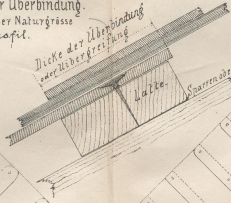 r Überbindung.
er Naturgrösse
rofil.
Dicke der Überbindung
oder Uibergreifung
Latte.
Sparrenobe